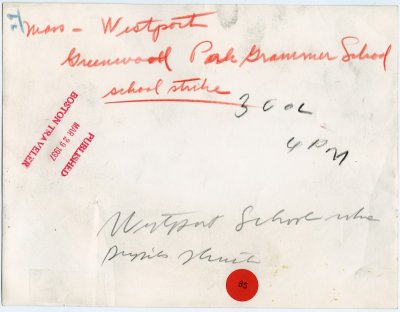 Mass - Westport
Greenwood Park Grammer School
school strike
3 COL
4 PM
PUBLISHED
MAR 29 1937
BOSTON TRAVELER
Westport School
pupils
85